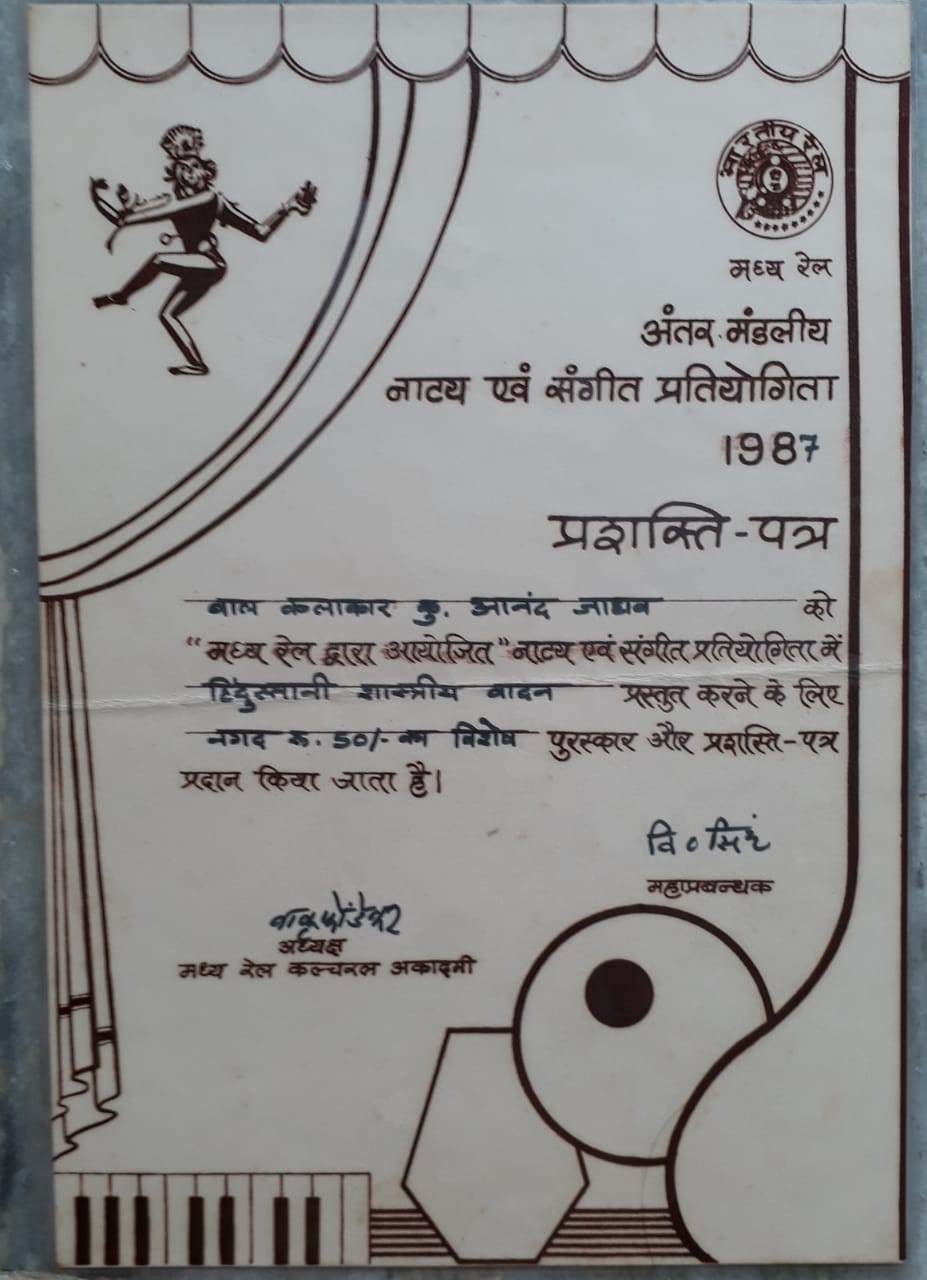 भारतीय रेल
मध्य रेल
अंतर मंडलीय
नाट्य एवं संगीत प्रतियोगिता
1987
प्रशस्ति-पत्र
बाल कलाकार कु. आनंद जाधव को
"मध्य रेल द्वारा आयोजित" नाट्य एवं संगीत प्रतियोगिता में
हिंदुस्तानी शास्त्रीय वादन प्रस्तुत करने के लिए
नगद रु. 50/- का विशेष पुरस्कार और प्रशस्ति-पत्र
प्रदान किया जाता है।
वि० सिंह
महाप्रबन्धक
अध्यक्ष
मध्य रेल कल्चरल अकादमी